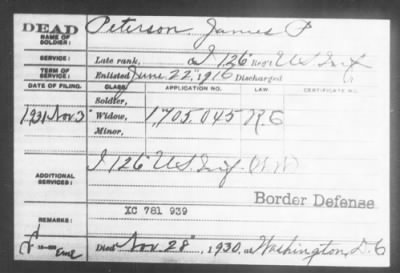 DEAD
NAME OF SOLDIER: Peterson James P
SERVICE: Late rank, Co I 126" Reg't U.S. Inf
TERM OF SERVICE: Enlisted June 22" 1916 Discharged
DATE OF FILING. CLASS. APPLICATION NO. LAW. CERTIFICATE NO.
Soldier,
1931 Nov 3" Widow, 1,705,045 RG
Minor,
ADDITIONAL SERVICES: I 126" U.S. Inf. W.W.
Border Defense
REMARKS: XC 781 939
Died Nov. 28", 1930, at Washington, D.C